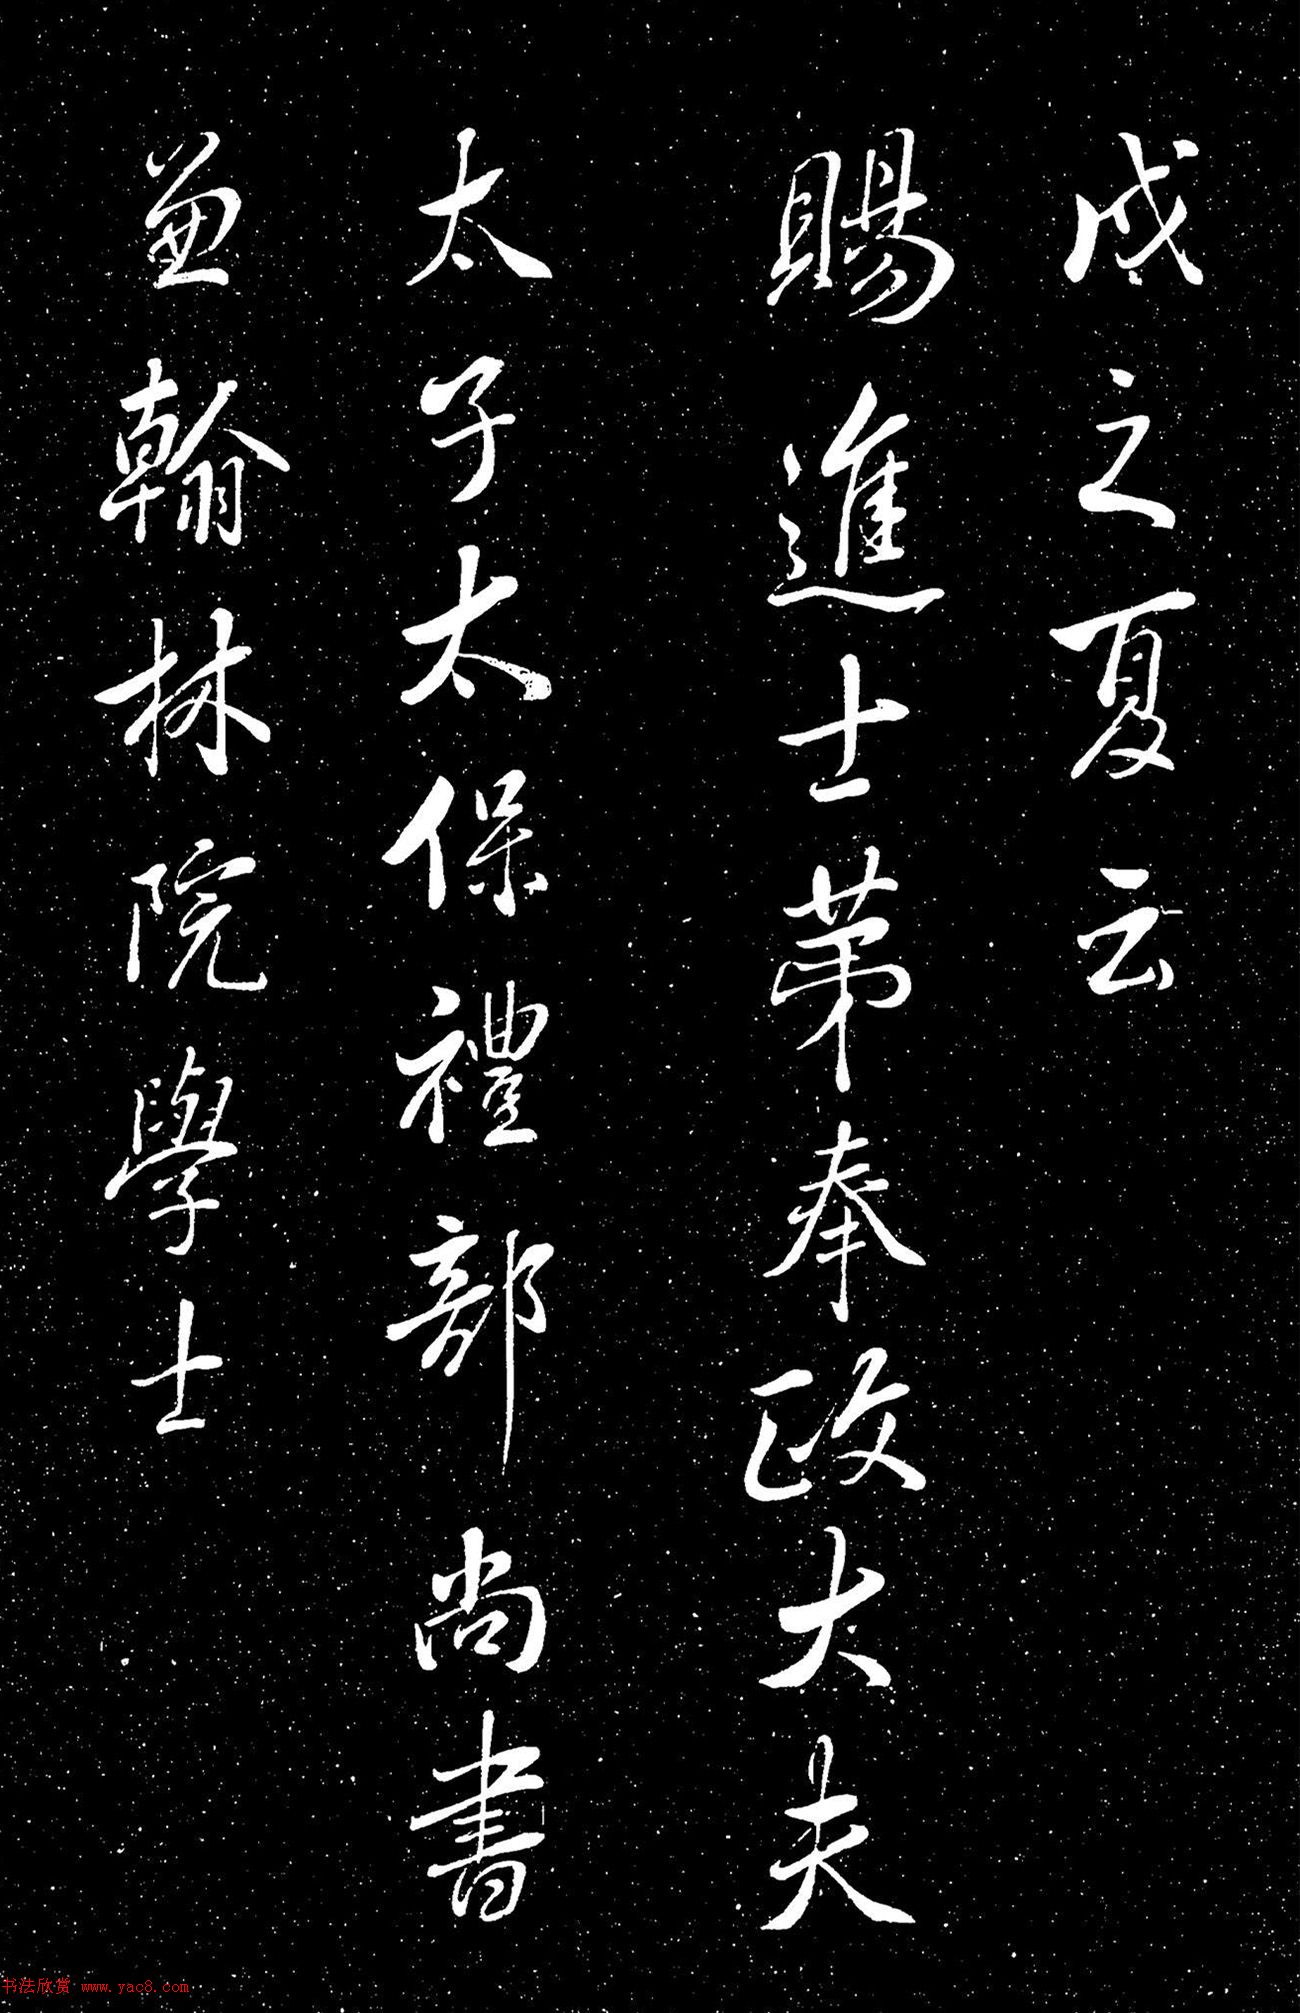 戊之夏云
賜進士第奉政大夫
太子太保禮部尚書
兼翰林院學士
书法欣赏 www.yac8.com